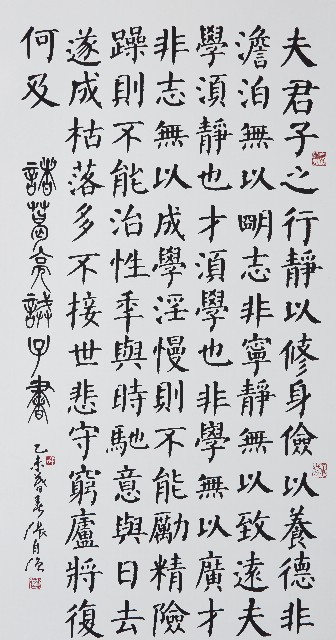 夫君子之行靜以修身儉以養德非
澹泊無以眀志非寧靜無以致遠夫
學湏靜也才湏學也非學無以廣才
非志無以成學淫慢則不能勵精險
躁則不能治性秊與時馳意與日去
遂成枯落多不接世悲守窮廬將復
何及
諸葛亮誡子書
乙未暮春張自